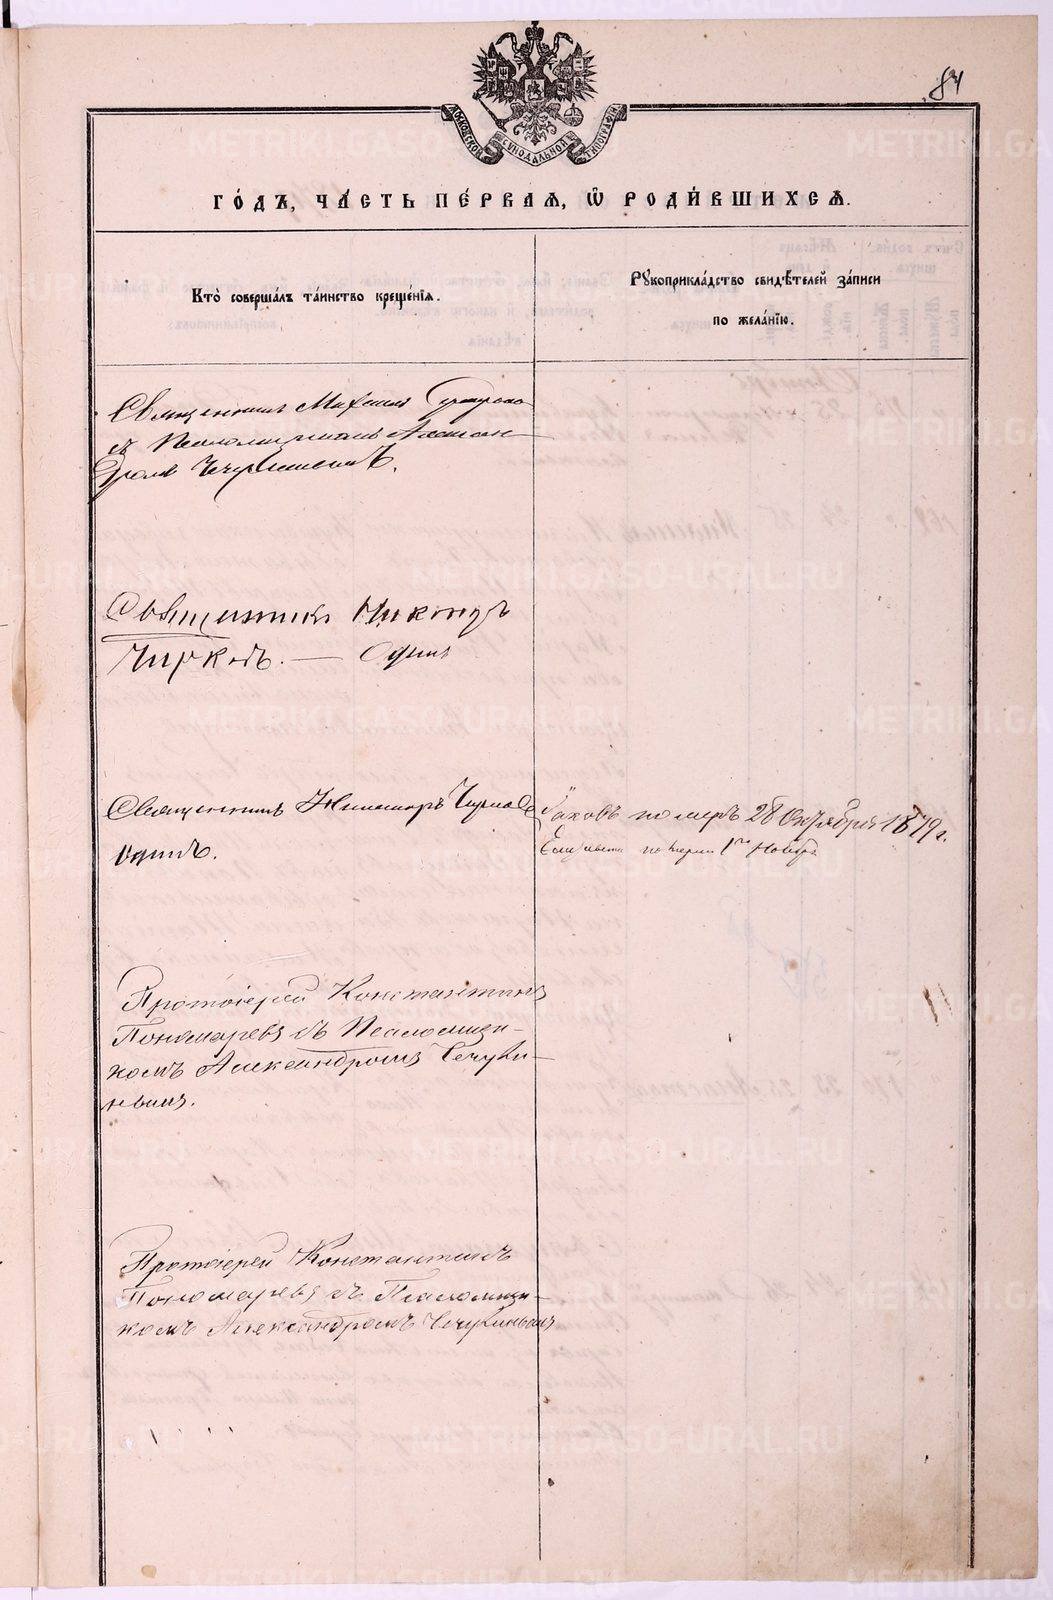 84
МОСКОВСКОЙ СѴНОДАЛЬНОЙ ТИПОГРАФІИ
ГО́ДЪ, ЧА́СТЬ ПЕ́РВАѦ, Ѽ РОДИ́ВШИХСѦ.
Кто̀ соверша́лъ та́инство креще́нїѧ.
Рꙋкоприкла́дство свидѣ́телей за́писи
по жела́нїю.
Священникъ Михаилъ
съ Псаломщикомъ Алексан-
дромъ
Священникъ Никаноръ
Чирковъ. — Одинъ
Священникъ Никаноръ Чирковъ
одинъ.
Іаковъ померъ 28 Октября 1879 г.
Елизавета померла 1го Ноября
Протоіерей Константинъ
Пономаревъ съ Псаломщи-
комъ Александромъ Чечули-
нымъ.
Протоіерей Константинъ
Пономаревъ съ Псаломщи-
комъ Александромъ Чечулинымъ
METRIKI.GASO-URAL.RU